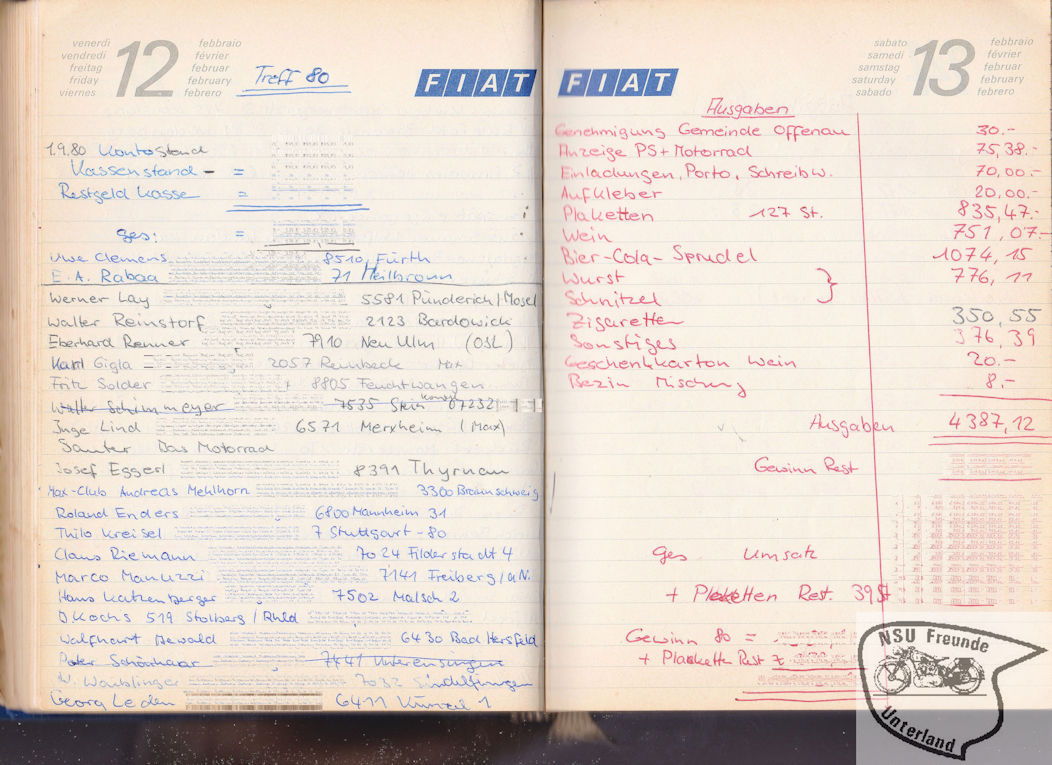 venerdi
vendredi
freitag
friday
viernes
12
febbraio
février
februar
february
febrero
Treff 80
FIAT
1.9.80 Kontostand
Kassenstand - =
Restgeld Kasse =
ges: =
Uwe Clemens 8510 Fürth
E. A. Rabaa 71 Heilbronn
Werner Lay 5581 Pünderich/Mosel
Walter Reinstorf 2123 Bardowick
Eberhard Renner 7910 Neu Ulm (OSL)
Karl Gigla 2057 Reinbeck Max
Fritz Solder 8805 Feuchtwangen
Walter Schimmeyer 7535 Stein 07232
Inge Lind 6571 Merxheim (Max)
Sauter Das Motorrad
Josef Eggerl 8391 Thyrnau
Max-Club Andreas Mehlhorn 3300 Braunschweig
Roland Enders 6800 Mannheim 31
Thilo Kreisel 7 Stuttgart-80
Claus Riemann 7024 Filderstadt 4
Marco Manuzzi 7141 Freiberg/a.N.
Hans Katzenberger 7502 Malsch 2
D Kochs 519 Stolberg / Rhld
Wolfhart Aewald 6430 Bad Hersfeld
Peter Schönhaar 7441 Unterensingen
W. Waiblinger 7032 Sindelfingen
Georg Leden 6411 Künzel 1
FIAT
sabato
samedi
samstag
saturday
sabado
13
febbraio
février
februar
february
febrero
Ausgaben
Genehmigung Gemeinde Offenau 30.-
Anzeige PS+Motorrad 75,38.-
Einladungen, Porto, Schreibw. 70,00.-
Aufkleber 20,00.-
Plaketten 127 St. 835,47.-
Wein 751,07.-
Bier-Cola-Sprudel 1074,15
Wurst } 776,11
Schnitzel
Zigaretten 350,55
Sonstiges 376,39
Geschenkkarton Wein 20.-
Bezin Mischung 8.-
Ausgaben 4387,12
Gewinn Rest
ges Umsatz
+ Plaketten Rest. 39 St
Gewinn 80 =
+ Plakette Rest
NSU Freunde
Unterland